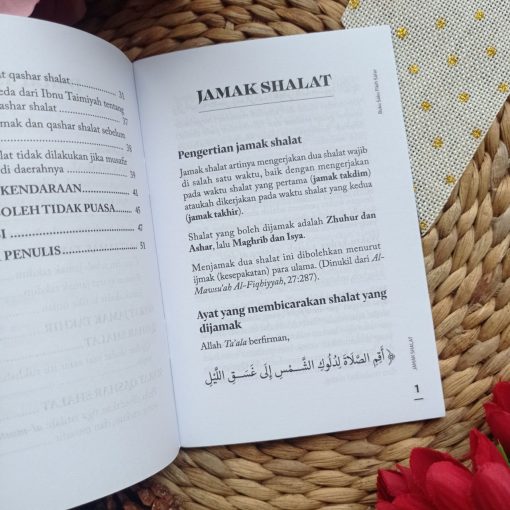 t qashar shalat 31
eda dari Ibnu Taimiyah tentang
qashar shalat 37
mak dan qashar shalat sebelum
38
lat tidak dilakukan jika musafir
di daerahnya 39
KENDARAAN 41
BOLEH TIDAK PUASA 45
SI 47
PENULIS 51
JAMAK SHALAT
Pengertian jamak shalat
Jamak shalat artinya mengerjakan dua shalat wajib
di salah satu waktu, baik dengan mengerjakan
pada waktu shalat yang pertama (jamak takdim)
ataukah dikerjakan pada waktu shalat yang kedua
(jamak takhir).
Shalat yang boleh dijamak adalah Zhuhur dan
Ashar, lalu Maghrib dan Isya.
Menjamak dua shalat ini dibolehkan menurut
ijmak (kesepakatan) para ulama. (Dinukil dari Al-
Mawsu'ah Al-Fiqhiyyah, 27:287).
Ayat yang membicarakan shalat yang
dijamak
Allah Ta'ala berfirman,
﴿ أَقِمِ الصَّلَاةَ لِدُلُوكِ الشَّمْسِ إِلَى غَسَقِ اللَّيْلِ
JAMAK SHALAT
1